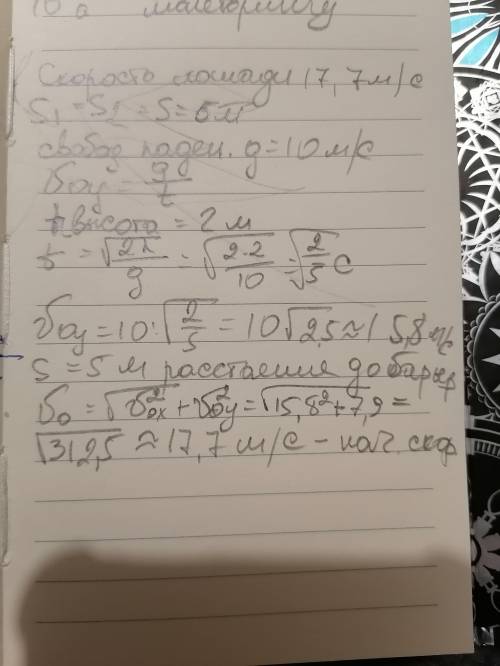 10 а
Скорость лошади 17,7 м/с
S₁ = S₂ = S = 5м
свобод паден. g = 10 м/с
υoy = g/t
h высота = 2 м
t = √(2h/g) = √(2·2/10) = √(2/5) с
υoy = 10 : √(2/5) = 10√2,5 ≈ 15,8 м/с
S = 5 м расстаение до барьер
υ₀ = √υ²ox + υ²oy = √15,8² + 7,9 =
√312,5 ≈ 17,7 м/с – нач. скор